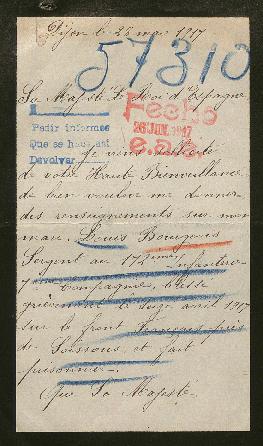 Dijon le 28 mai 1917
57310
Sa Majesté Le Roi d'Espagne
Fecho
26 JUN. 1917
e.a.c.
Pedir informes
Que se haga así
Devolver
Je viens
de votre Haute Bienveillance
de bien vouloir me donner
des renseignements sur mon
mari. Louis Bourgeois
Sergent au 172ème Infanterie
7ème Compagnie, blessé
grièvement le seize avril 1917
sur le front Français près
de Soissons, et fait
prisonnier.
Que Sa Majesté